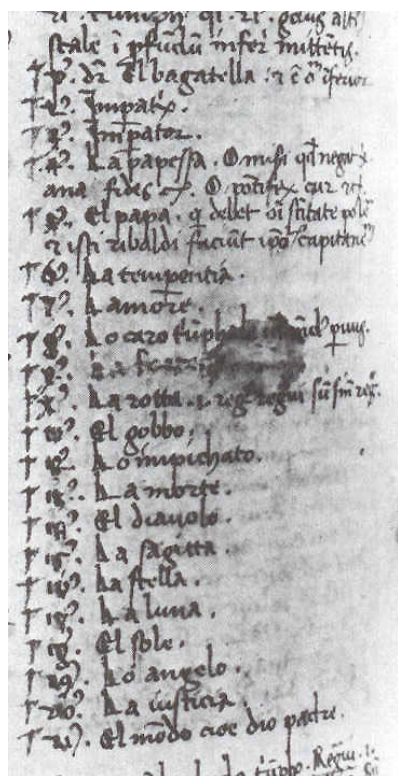 scale i pfudu inferi mittetis.
p⁹. dr El bagatella. 2 ē oīm iferior
2⁹. Impatx.
3⁹. Impator.
4⁹. La papessa. O miseri qd negat x
ana fides. O potifex cur etc.
5⁹. El papa. q debet oi sctitate pole
2 isti ribaldi faciut ipo capitane
6⁹. La temperitia.
7⁹. Lamore.
8⁹. Lo caro triuphale mud puus.
9⁹. La
10⁹. La rotta. i. reg. regui su sn reg.
11⁹. El gobbo.
12⁹. Lo impichato.
13⁹. La morte.
14⁹. El diauolo.
15⁹. La sagitta.
16⁹. La stella.
17⁹. La luna.
18⁹. El sole.
19⁹. Lo angelo.
20⁹. La iusticia.
21⁹. El mōdo cioe dio padre.